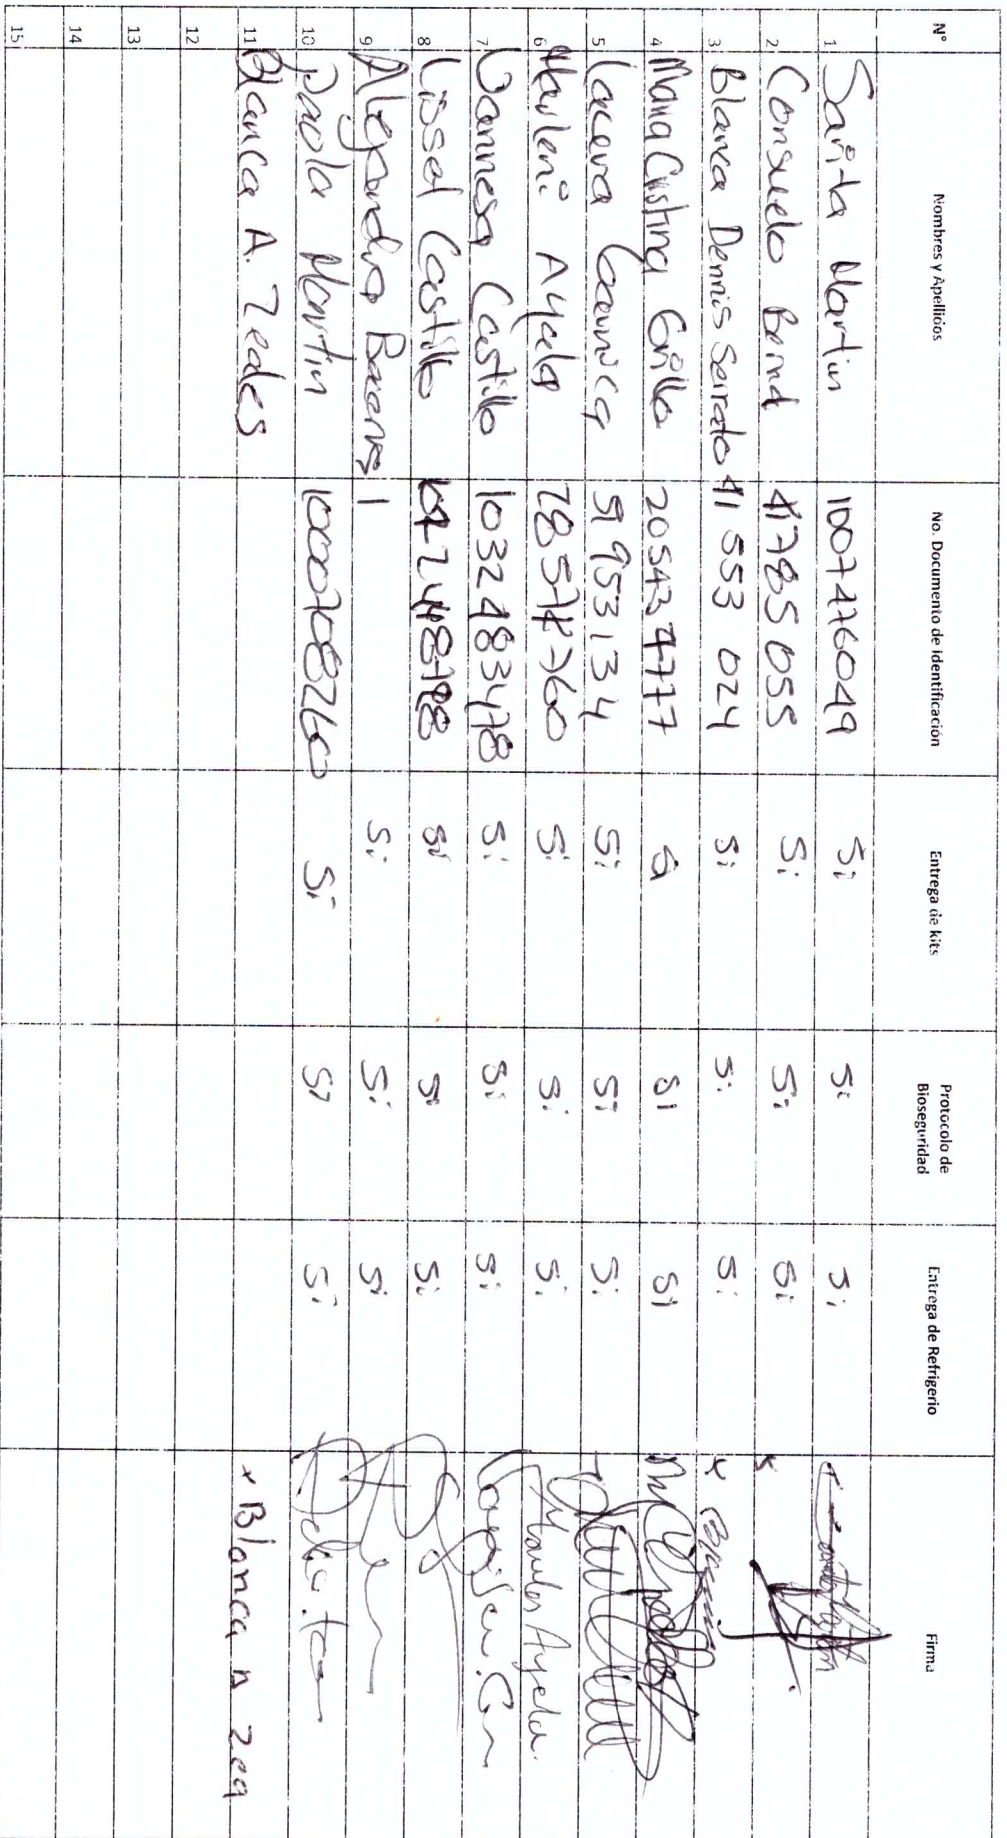 N° Nombres y Apellidos No. Documento de Identificación Entrega de kits Protocolo de Bioseguridad Entrega de Refrigerio Firma
1 Sarita Martin 1007476049 Si Si Si
2 Consuelo Bernal 41785055 Si Si Si x
3 Blanca Dennis Serrato 41 553 024 Si Si Si x
4 Maria Cristina Grillo 20543777 Si Si
5 51953134 Si Si Si
6 Marleni Ayala Si Si Si Ayala
7 Vannesa Castillo 1032483478 Si Si Si
8 Lissel Castillo Si Si Si
9 Alejandra 1 Si Si Si
10 Paola Martin 1000708260 Si Si Si
11 Blanca A. x Blanca n zea
12
13
14
15